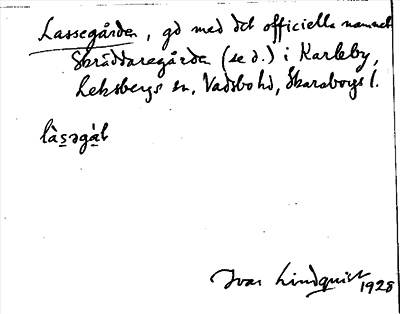 Lassegården, gd med det officiella namnet
Skräddaregården (se d.) i Karleby,
Leksbergs sn, Vadsbo hd, Skaraborgs l.
Ivar Lindquist
1928